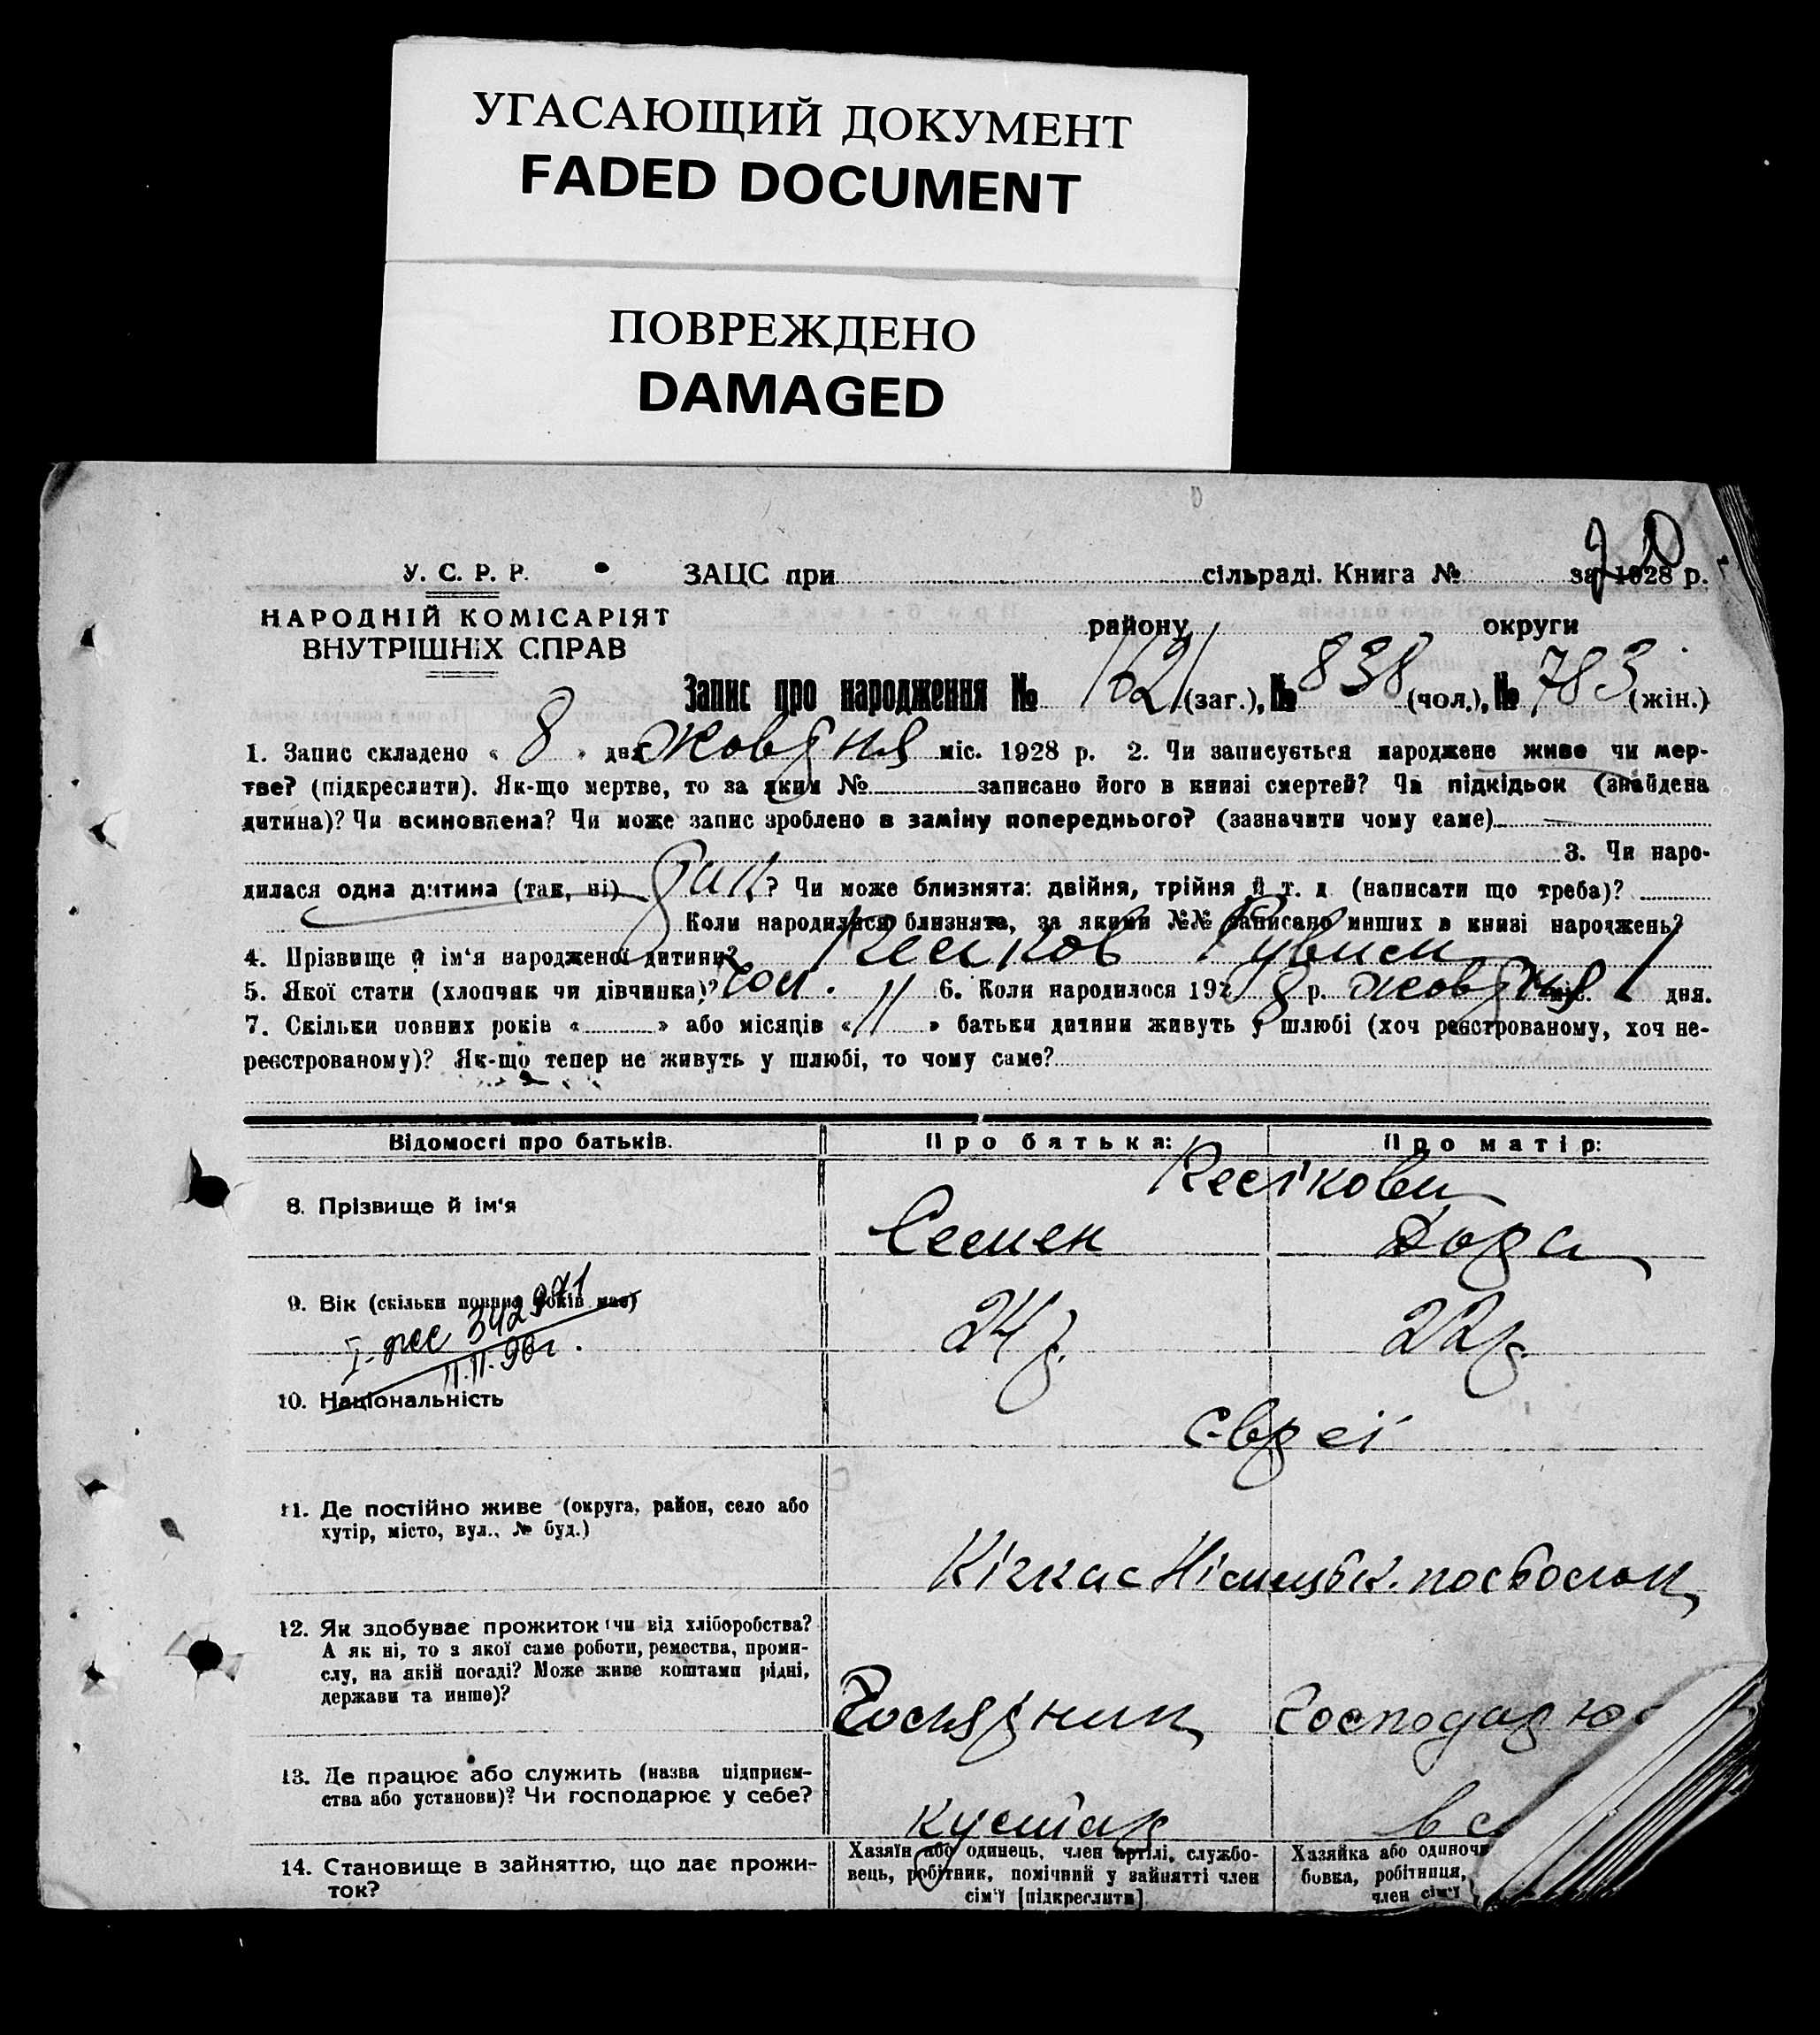 УГАСАЮЩИЙ ДОКУМЕНТ
FADED DOCUMENT
ПОВРЕЖДЕНО
DAMAGED
У. С. Р. Р. ЗАЦС при сільраді. Книга № за 1928 р.
НАРОДНІЙ КОМІСАРІЯТ району округи
ВНУТРІШНІХ СПРАВ
Запис про народження № 1621 (заг.), № 838 (чол.), № 783 (жін.)
1. Запис складено « 8 » дня жовдня міс. 1928 р. 2. Чи записується народжене живе чи мер-
тве? (підкреслити). Як-що мертве, то за яким № записано його в книзі смертей? Чи підкідьок (знайдена
дитина)? Чи всиновлена? Чи може запис зроблено в заміну попереднього? (зазначити чому саме)
3. Чи наро-
дилася одна дитина (так, ні) ? Чи може близнята: двійня, трійня й т. д (написати що треба)?
Коли народилися близнята, за якими №№ записано инших в книзі народжень?
4. Прізвище й ім'я народженої дитини?
5. Якої стати (хлопчак чи дівчинка)? чол. 6. Коли народилося 1928 р. жовдня міс. 1 дня.
7. Скільки повних років « » або місяців « 11 » батьки дитини живуть у шлюбі (хоч реєстрованому, хоч не-
реєстрованому)? Як-що тепер не живуть у шлюбі, то чому саме?
Відомості про батьків. Про батька: Про матір:
8. Прізвище й ім'я
Семен Дора
9. Вік (скільки повних років має) 24 р. 22 р.
342971
11.11.90г.
10. Національність
Євреї
11. Де постійно живе (округа, район, село або
хутір, місто, вул., № буд.)
Кічкас Німецьк. посьолок
12. Як здобуває прожиток (чи від хліборобства?
А як ні, то з якої саме роботи, ремества, проми-
слу, на якій посаді? Може живе коштами рідні,
держави та инше)?
13. Де працює або служить (назва підприєм-
ства або установи)? Чи господарює у себе?
кустар
14. Становище в зайняттю, що дає прожи-
ток?
Хазяїн або одинець, член артілі, службо-
вець, робітник, помічний у зайнятті член
сім'ї [підкреслити]
Хазяйка або одиноч
бовка, робітниця,
член сім'ї